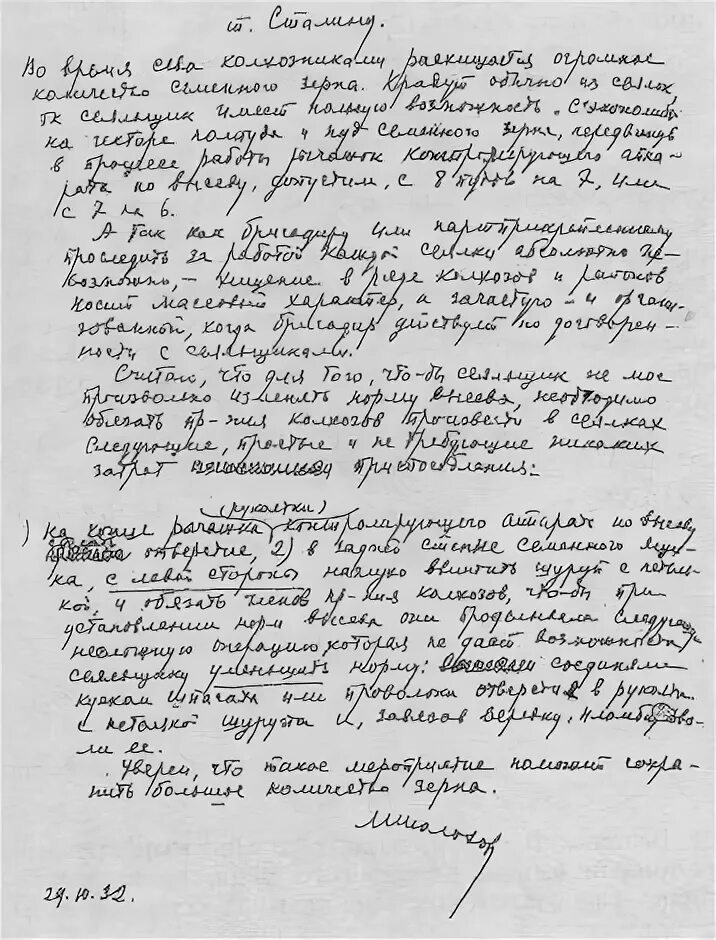 т. Сталину.
Во время сева колхозниками расхищается огромное
количество семенного зерна. Крадут обычно из сеялок,
тк сеяльщик имеет полную возможность "сэкономить"
на гектаре полпуда и пуд семенного зерна, передвинув
в процессе работы рычажок контролирующего аппа-
рата по высеву, допустим, с 8 пудов на 7, или
с 7 на 6.
А так как бригадиру или партприкрепленному
проследить за работой каждой сеялки абсолютно не-
возможно, – хищение в ряде колхозов и районов
носит массовый характер, а зачастую – и органи-
зованной, когда бригадир действует по договорен-
ности с сеяльщиками.
Считаю, что для того, что-бы сеяльщик не мог
произвольно изменять норму высева, необходимо
обязать пр-ния колхозов произвести в сеялках
следующие, простые и не требующие никаких
затрат приспособления:
(рукоятки)
1) на конце рычажка контролирующего аппарат по высеву
сделать
отверстие, 2) в задней стенке семенного ящи-
ка, с левой стороны наглухо ввинтить шуруп с петель-
кой, и обязать членов пр-ния колхозов, что-бы при
установлении норм высева они проделывали следующую
несложную операцию которая не дает возможности
сеяльщику уменьшать норму: соединяли
куском шпагата или проволоки отверстие в рукоятке
с петелкой шурупа и, завязав веревку, пломбирова-
ли ее.
Уверен, что такое мероприятие поможет сохра-
нить большое количество зерна.
М Шолохов
29.10.32.